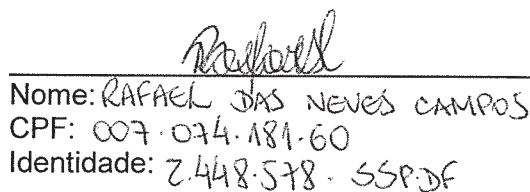 Rafael
Nome: RAFAEL DAS NEVES CAMPOS
CPF: 007.074.181.60
Identidade: 2.448.578 - SSP.DF